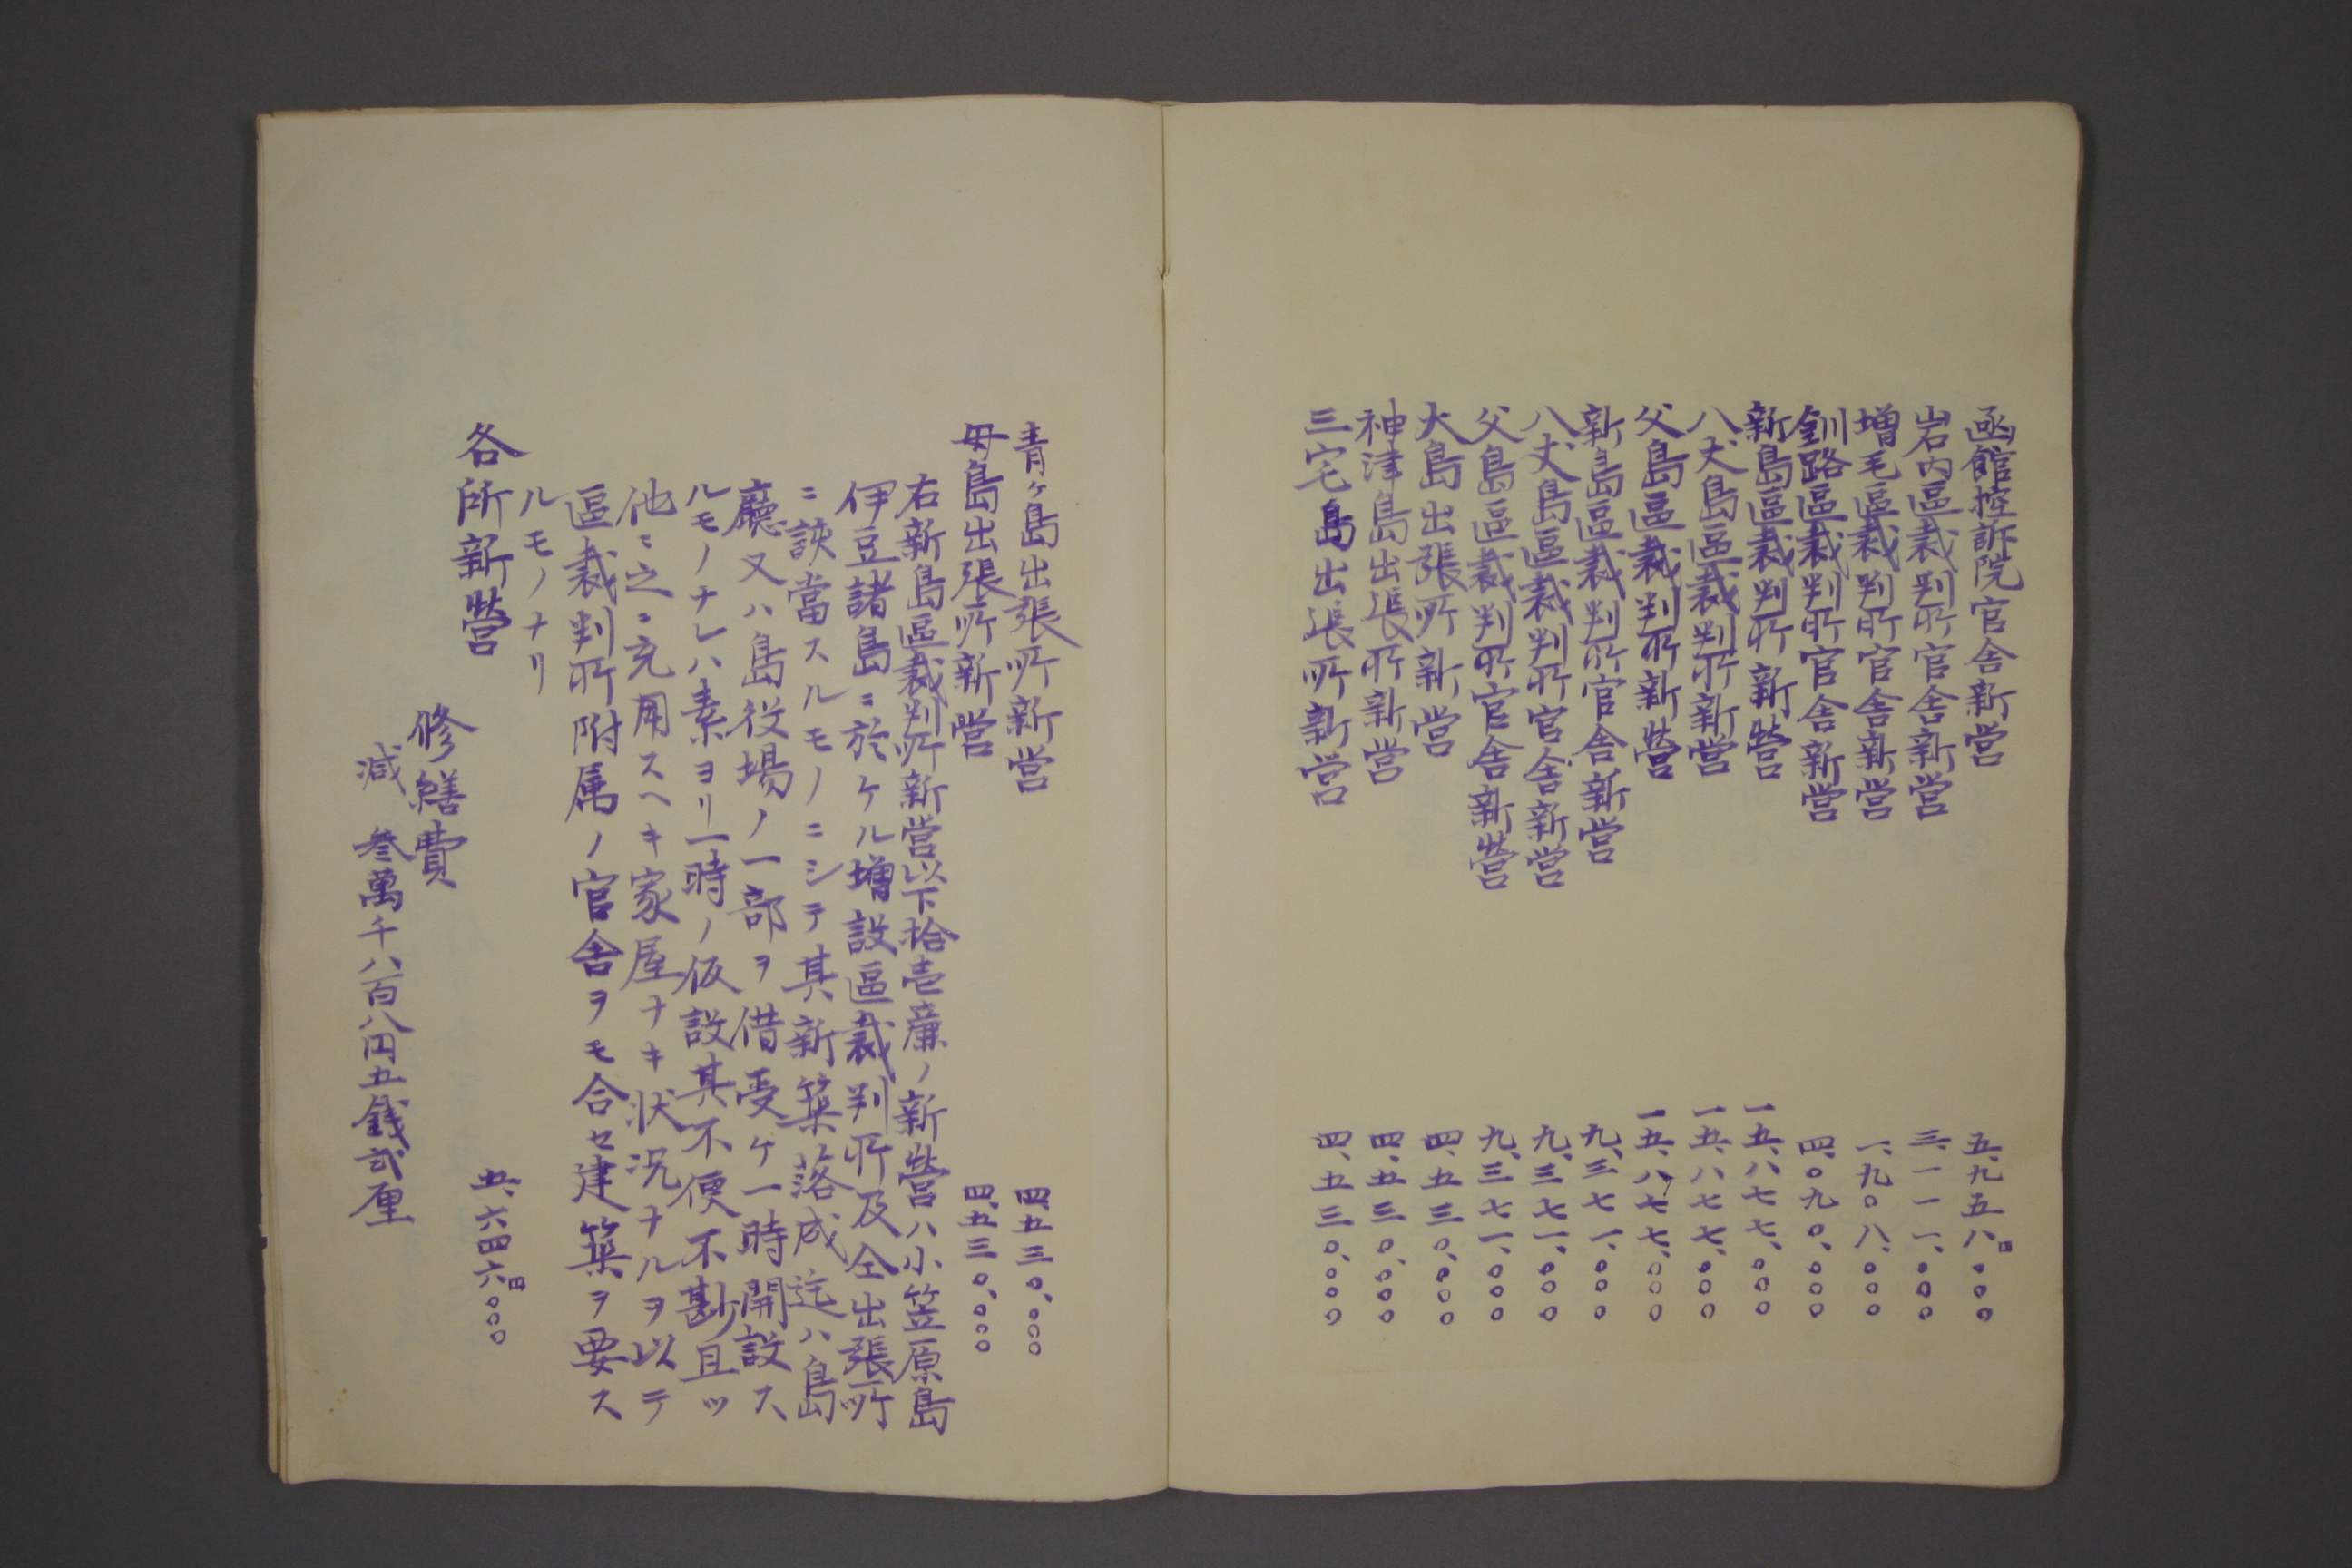 函館控訴院官舎新営 五、九五八円、〇〇〇
岩内區裁判所官舎新営 三、一一一、〇〇〇
増毛區裁判所官舎新営 一、九〇八、〇〇〇
釧路區裁判所官舎新営 四、〇九〇、〇〇〇
新島區裁判所新營 一五、八七七、〇〇〇
八丈島區裁判所新営 一五、八七七、〇〇〇
父島區裁判所新營 一五、八七七、〇〇〇
新島區裁判所官舎新営 九、三七一、〇〇〇
八丈島區裁判所官舎新営 九、三七一、〇〇〇
父島區裁判所官舎新營 九、三七一、〇〇〇
大島出張所新営 四、五三〇、〇〇〇
神津島出張所新営 四、五三〇、〇〇〇
三宅島出張所新営 四、五三〇、〇〇〇
青ヶ島出張所新営 四、五三〇、〇〇〇
母島出張所新営 四、五三〇、〇〇〇
右新島區裁判所新営以下拾壱廉ノ新營ハ小笠原島
伊豆諸島ニ於ケル増設區裁判所及仝出張所
ニ該當スルモノニシテ其新築落成迄ハ島
廳又ハ島役場ノ一部ヲ借受ケ一時開設ス
ルモノナレハ素ヨリ一時ノ仮設其不便不尠且ツ
他ニ之ニ充用スヘキ家屋ナキ状况ナルヲ以テ
區裁判所附属ノ官舎ヲモ合セ建築ヲ要ス
ルモノナリ
各所新營 五、六四六円〇〇〇
修繕費
減 叁萬千八百八円五銭弍厘